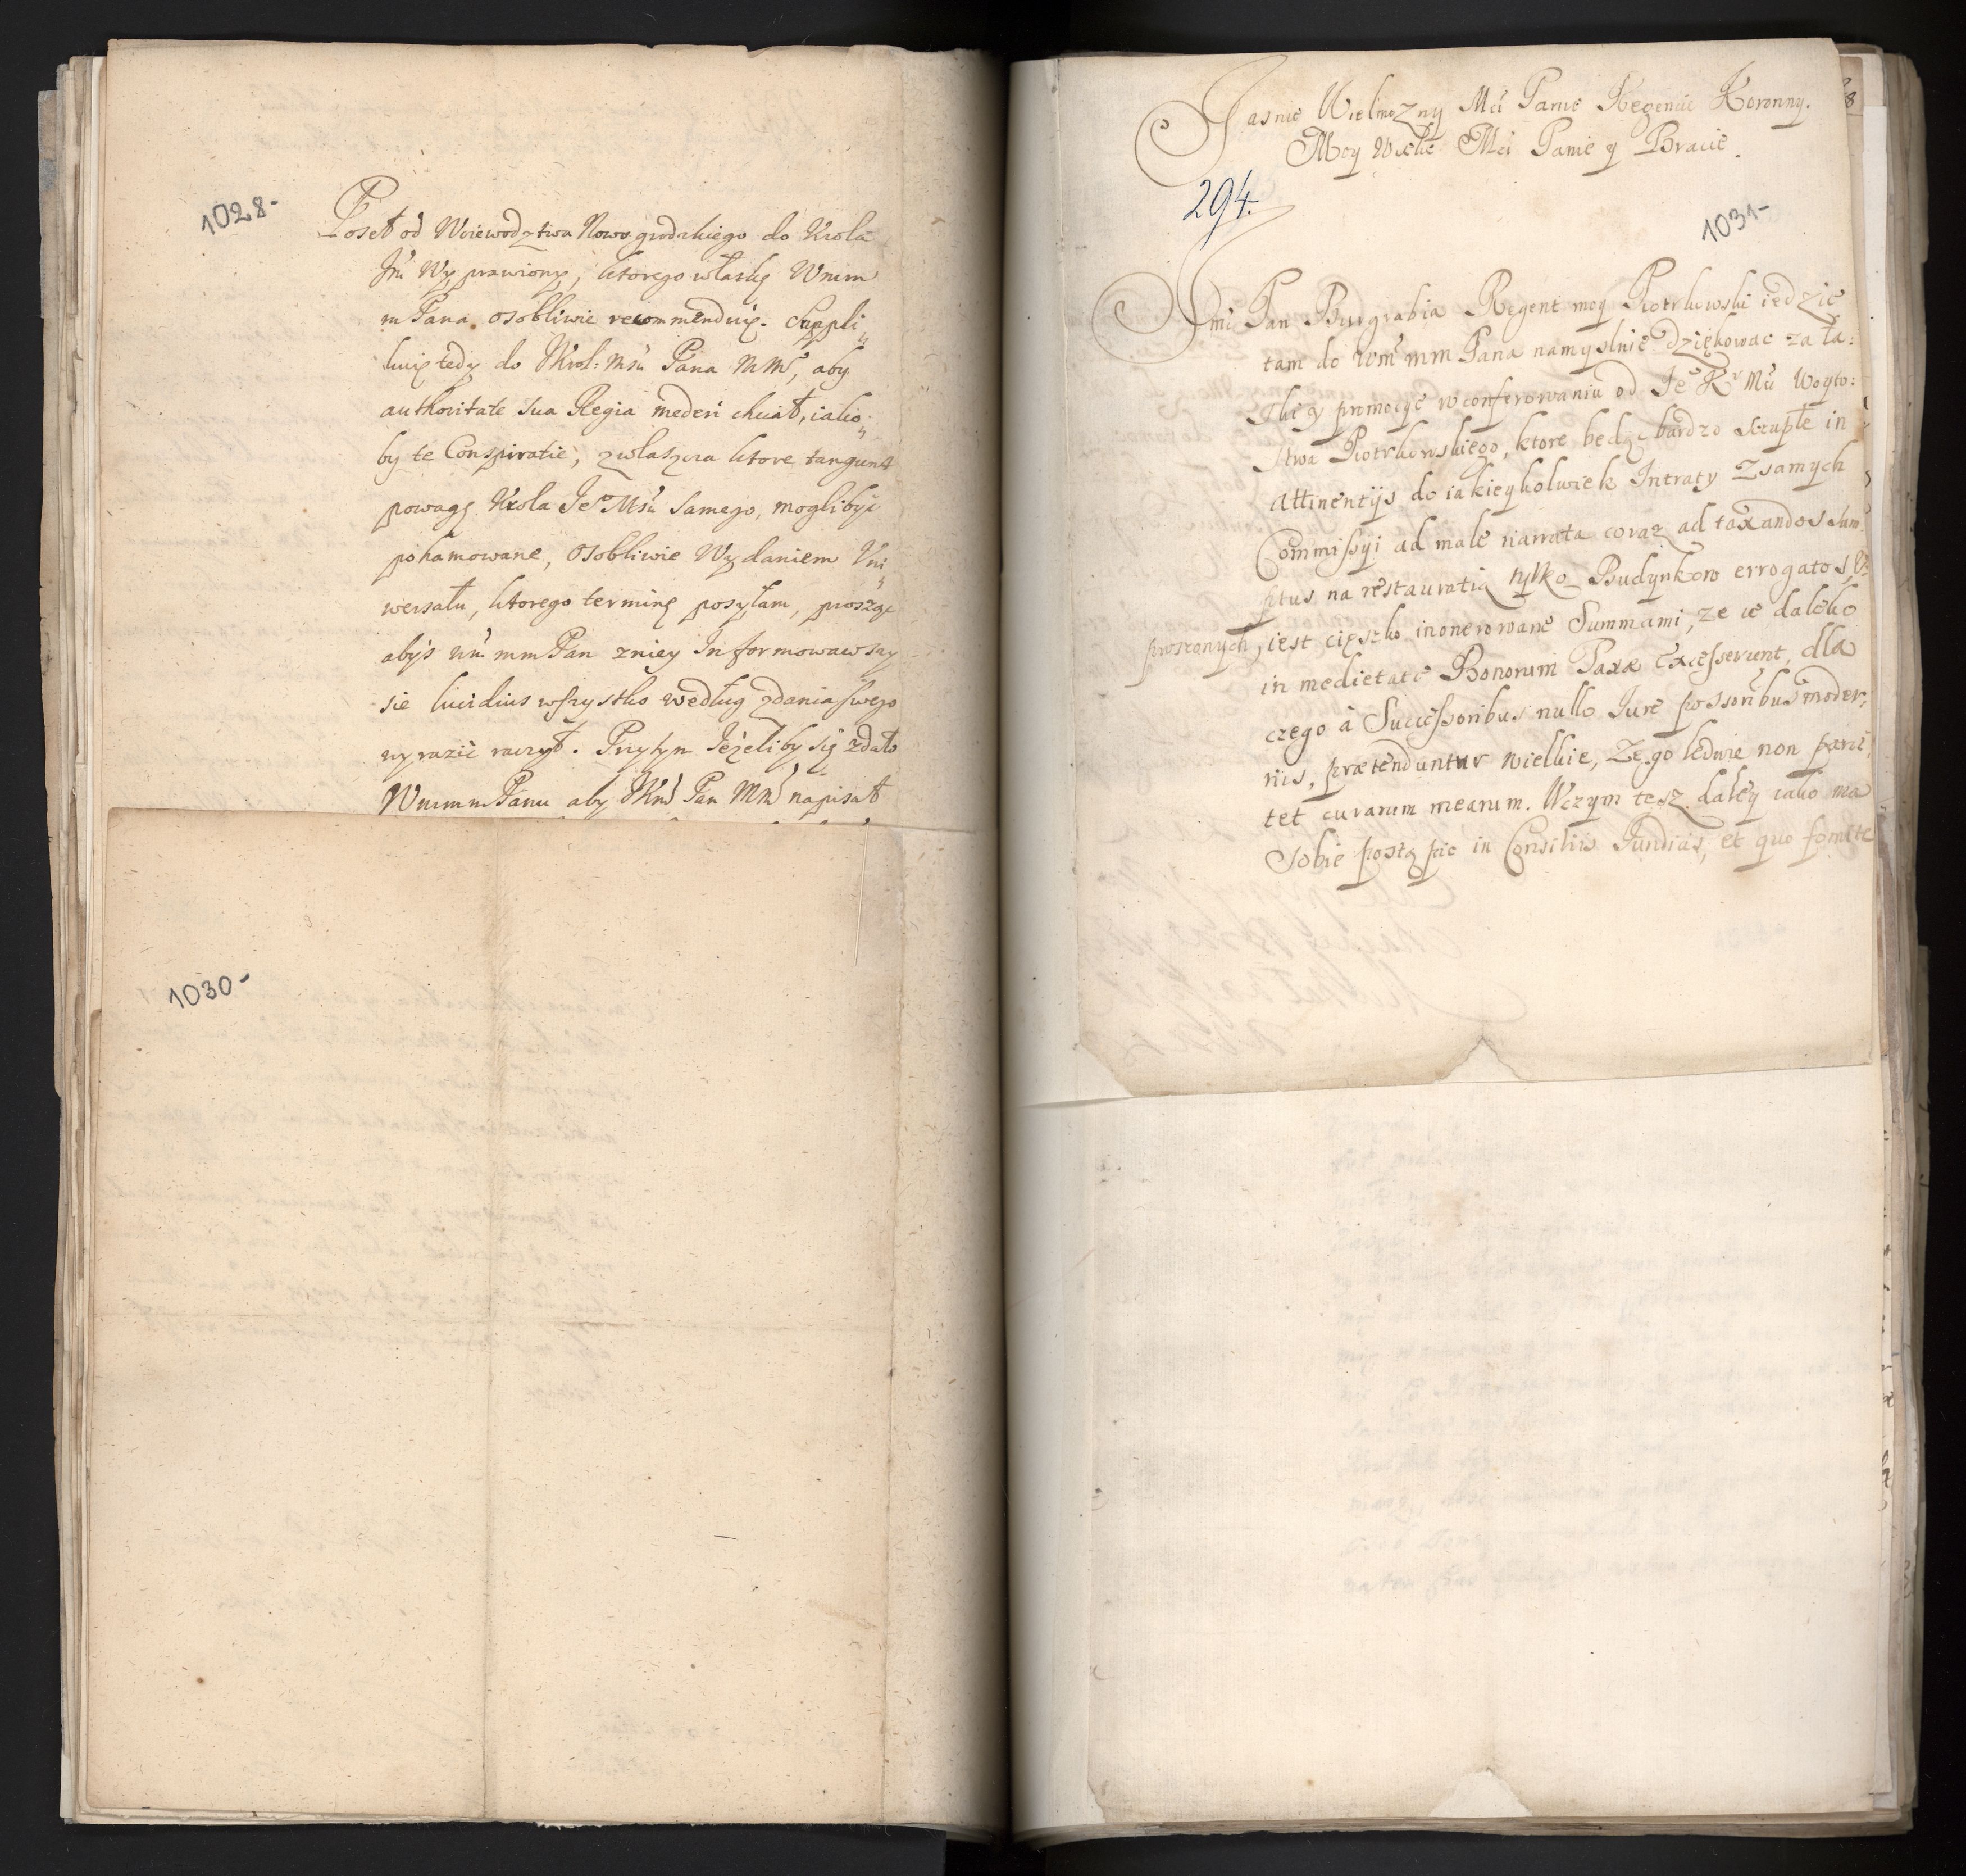 1028-
Poseł od Woiewodztwa Nowogrodzkiego do Krola
Jmi Wyprawiony, ktorego w łaskę Wmm
m Pana osobliwie recommenduię. Suppli
kuię tedy do JKrol: Msci Pana MMo, aby
authoritate sua Regia mederi chciał, iako
by te Conspiratie, zwłaszcza ktore tangunt
powagę Krola Jeo Msci samego, mogli być
pohamowane, osobliwie Wydaniem Vni
wersału, ktorego terminę posyłam, proszęc
abyś wm mm Pan zniey Informowawszy
sie lucidius wszystko według zdania swego
wyrazić raczył. Przytym Jeżeliby się zdało
Wmmm Panu aby JKM Pan MM napisał
1030-
Jasnie Wielmozny Mci Panie Regencie Koronny.
Moy Wielce Mci Panie y Bracie.
294.
1031-
Jmi Pan Burgrabia Regent moy Piotrkowski iedzie
tam do wme mm Pana namyslnie dziękowac za ła:
skę y promocye w conferowaniu od Je Kr Mci Woyto:
stwa Piotrkowskiego, ktore będąc bardzo szupłe in
attinentijs do iakieykolwiek Intraty z samych
Commissyi ad male narrata coraz ad taxandos sum
ptus na restauratią tylko Budynkow errogatos, W
proszonych, iest cięszko inonerowane Summami, ze ie daleko
in medietate Bonorum Taxæ excesserunt, dla
czego à Successoribus nullo Iure possoribus moder,
nis, prætenduntur wielkie, Ze go ledwie non pænè,
tet curarum mearum. Wczym tesz daley iako ma
sobie postąpic in Consiliis Iundiais, et quo fomite